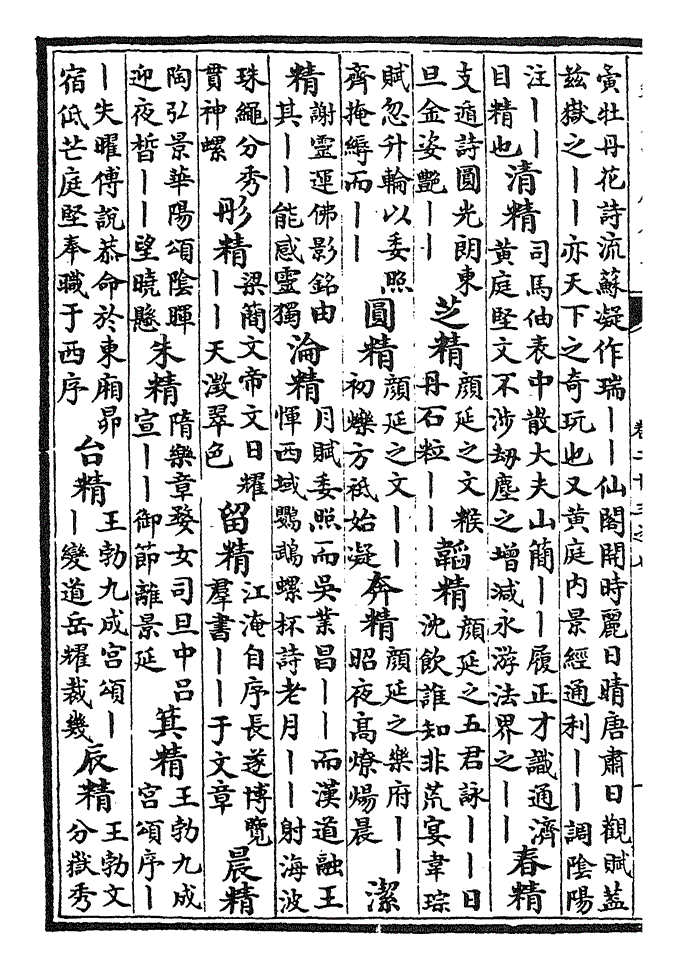 寅牡丹花詩流蘇凝作瑞——仙閣開時麗日晴唐肅日觀賦蓋
兹嶽之——亦天下之奇玩也又黃庭內景經通利——調陰陽
注——
目精也
清精
司馬伷表中散大夫山簡——履正才識通濟
黃庭堅文不涉劫塵之增減永游法界之——
春精
支遁詩圓光朗東
旦金姿艷——
芝精
顏延之文糇
丹石粒——
韜精
顏延之五君詠——日
沈飲誰知非荒宴韋琮
賦忽升輪以委照
齊掩縟而——
圓精
顏延之文——
初爍方祇始凝
奔精
顏延之樂府——
昭夜高燎煬晨
潔
精
謝靈運佛影銘由
其——能感靈獨
淪精
月賦委照而吳業昌——而漢道融王
惲西域鸚鵡螺杯詩老月——射海波
珠繩分秀
貫神螺
彤精
梁簡文帝文日耀
——天澂翠色
留精
江淹自序長遂博覽
羣書——于文章
晨精
陶弘景華陽頌陰暉
迎夜晳——望曉懸
朱精
隋樂章婺女司旦中呂
宣——御節離景延
箕精
王勃九成
宮頌序—
—失曜傅說恭命於東廂昴
宿低芒庭堅奉職于西序
台精
王勃九成宮頌—
—變道岳耀裁幾
辰精
王勃文
分嶽秀